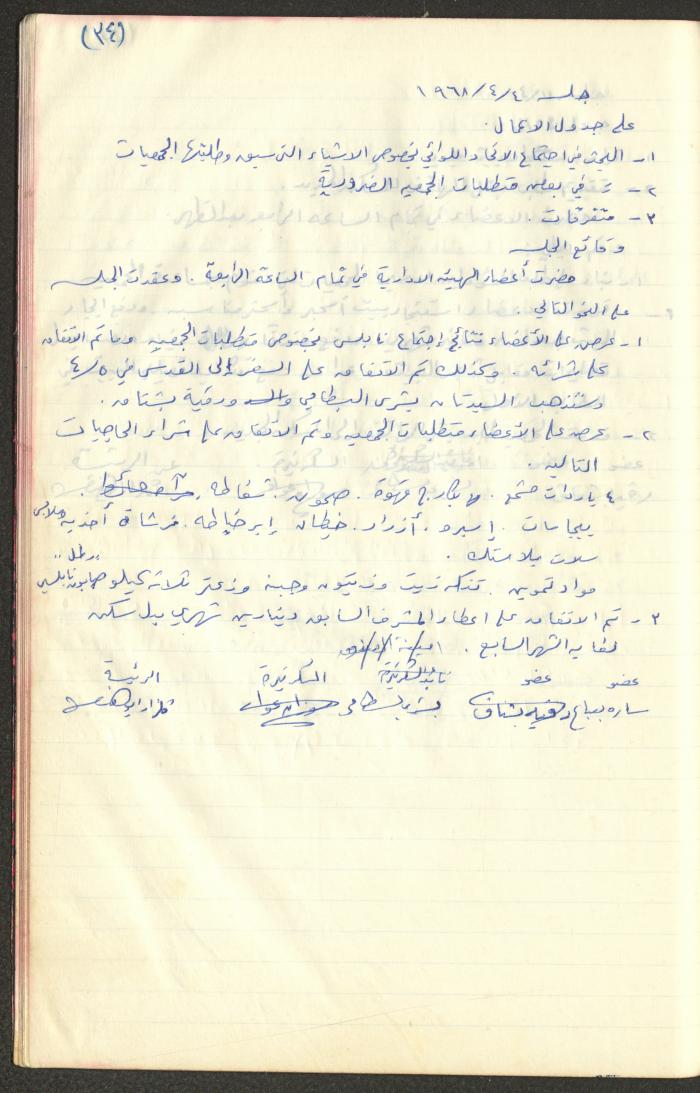 (٣٤)
جلسة ٤/٤/١٩٦٨
على جدول الاعمال.
١- البحث في اجتماع الاتحاد اللوائي بخصوص الاشياء التي سبق وطلبتها الجمعيات
٢- في بعض متطلبات الجمعيه الضرورية
٣- متفرقات.
وقائع الجلسه
حضرت أعضاء الهيئة الادارية في تمام الساعة الرابعة. وعقدت الجلسه
على النحو التالي
١- عرض على الأعضاء نتائج إجتماع نابلس بخصوص متطلبات الجمعيه وما تم الاتفاق
على شرائه. وكذلك تم الاتفاق على السفر إلى القدس في ٤/٥
وستذهب السيدتان يشرى البسطامي ورقية بشتاق.
٢- عرض على الأعضاء متطلبات الجمعيه وتم الاتفاق على شراء الحاجيات
التاليه.
٤ ياردات مشمع. بكارج قهوة. صحون. شفاطه.
بيجامات. إسبرو. أزرار. خيطان إبر خياطه. فرشاة أحذيه وملابس
سلات بلاستك.
مواد تموين. تنكه زيت وزيتون وجبنه وزعتر ثلاثه كيلو صابون نابلسي "رطل"
٣- تم الاتفاق على اعطاء المشرف السابق دينارين شهري بدل سكن
لغايه الشهر السابع. امينة
عضو عضو نائبة السكرتيرة السكرتيرة الرئيسة
ساره بياع رقيه بشتاق يشرى بسطامي